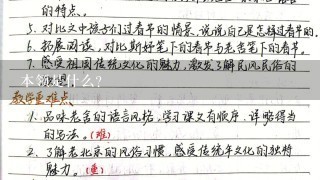 的特点。
5、对比文中孩子们过春节的情景,说说自己是怎样过春节的。
6、拓展阅读,对比斯好笔下的春节与老舍笔下的春节。
7、感受祖国传统文化的魅力,激发了解民风民俗的
本领是什么?
教学重难点
1、品味老舍的语言风格,学习课文有顺序、详略得当
的写法。(难)
2、了解老北京的风俗习惯,感受传统年文化的独特
魅力。(重)